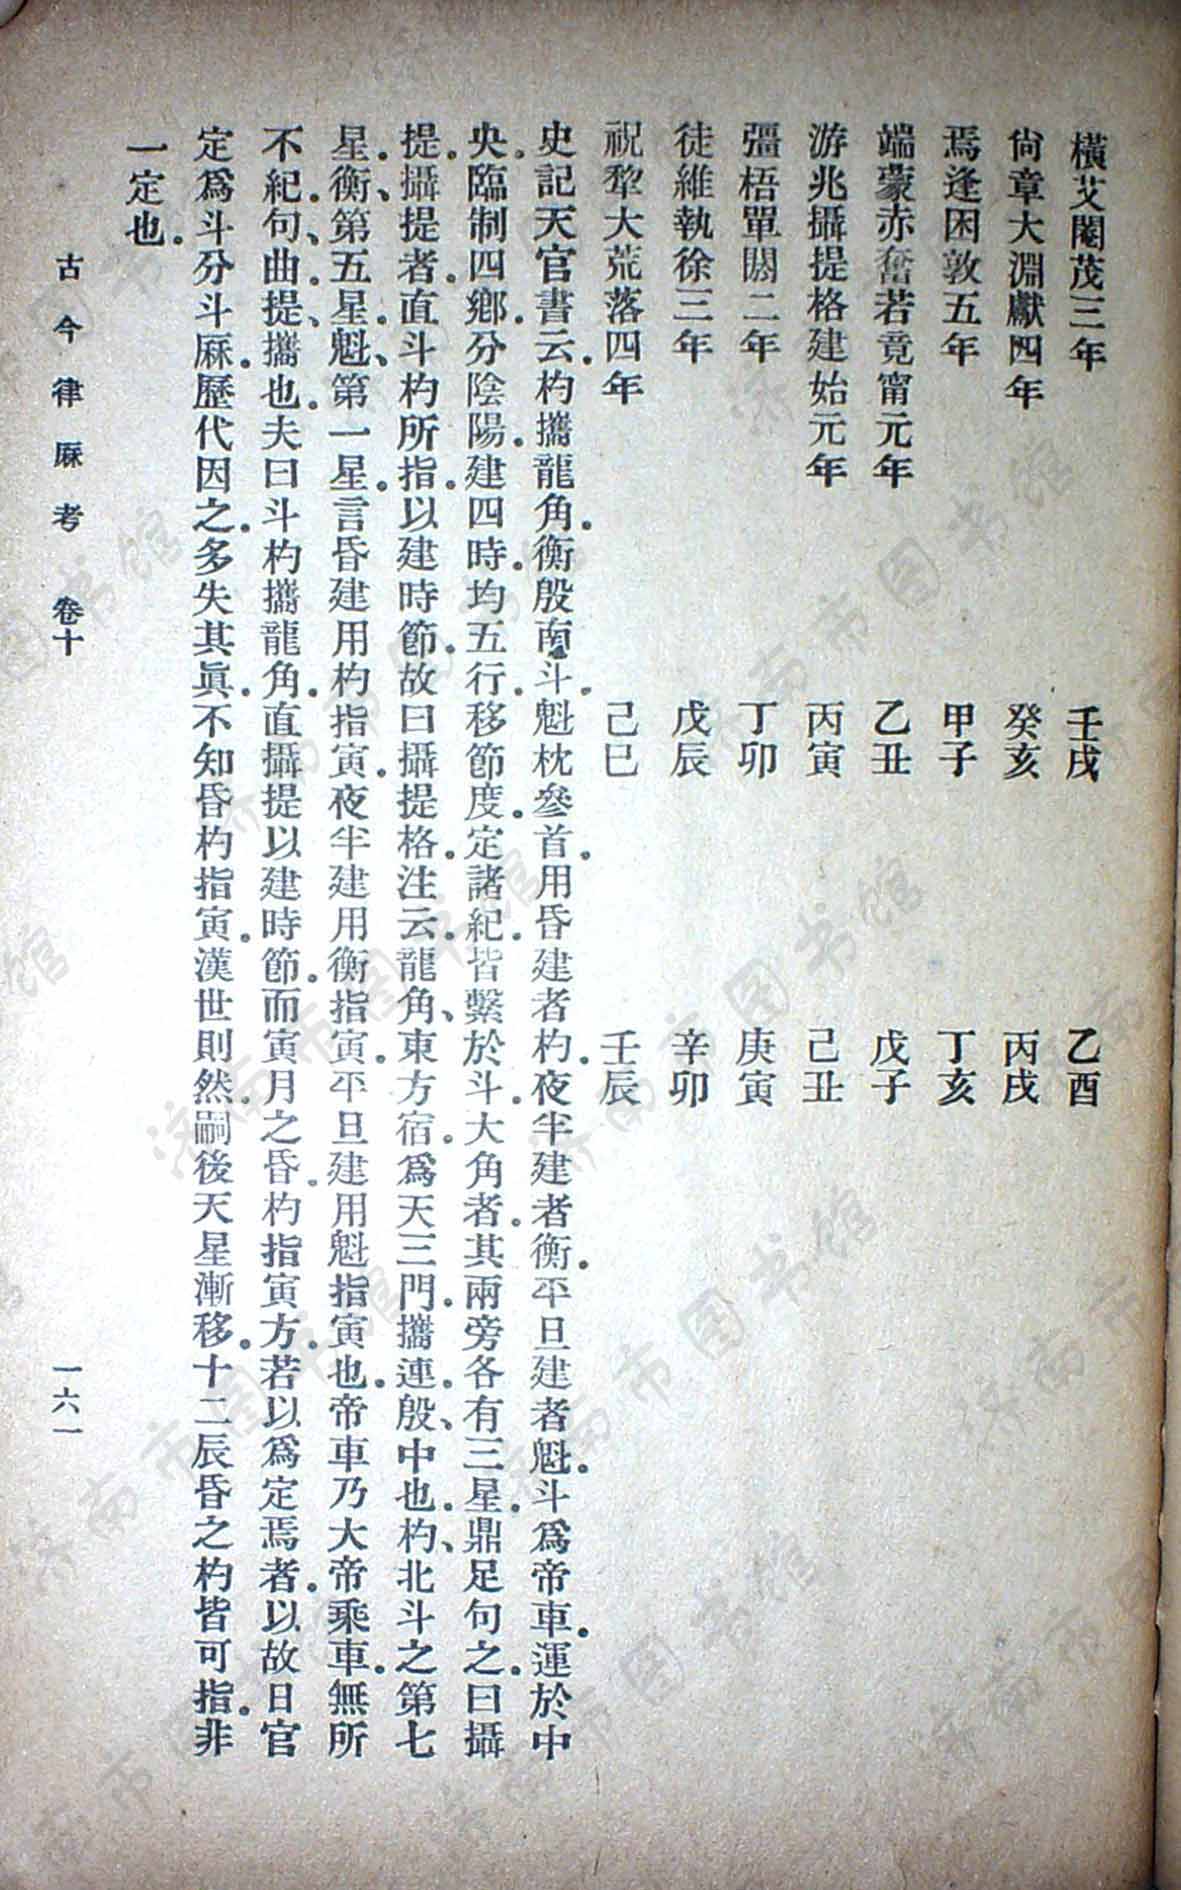 橫艾閹茂三年　壬戌　乙酉
尙章大淵獻四年　癸亥　丙戌
焉逢困敦五年　甲子　丁亥
端蒙赤奮若竟甯元年　乙丑　戊子
游兆攝提格建始元年　丙寅　己丑
彊梧單閼二年　丁卯　庚寅
徒維執徐三年　戊辰　辛卯
祝犂大荒落四年　己巳　壬辰
史記天官書云。杓攜龍角。衡殷南斗。魁枕參首。用昏建者杓。夜半建者衡。平旦建者魁。斗爲帝車。運於中
央。臨制四鄉。分陰陽。建四時。均五行。移節度。定諸紀。皆繫於斗。大角者。其兩旁各有三星。鼎足句之。曰攝
提。攝提者。直斗杓所指。以建時節。故曰攝提格。注云。龍角、東方宿。爲天三門。攜連。殷、中也。杓、北斗之第七
星。衡、第五星。魁、第一星。言昏建用杓指寅。夜半建用衡指寅。平旦建用魁指寅也。帝車乃大帝乘車。無所
不紀。句、曲。提、攜也。夫曰斗杓攜龍角。直攝提以建時節。而寅月之昏。杓指寅方。若以爲定焉者。以故日官
定爲斗分斗厤。歷代因之。多失其眞。不知昏杓指寅。漢世則然。嗣後天星漸移。十二辰昏之杓皆可指。非
一定也。
古今律厤考　卷十　一六一
济南市图书馆